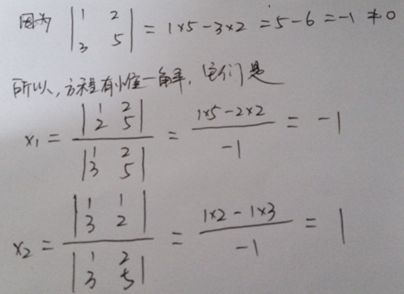 因为 | 1 2 ; 3 5 | = 1×5-3×2 = 5-6 = -1 ≠ 0
所以,方程有惟一解,它们是
x₁ = | 1 2 ; 2 5 | / | 1 2 ; 3 5 | = (1×5-2×2) / -1 = -1
x₂ = | 1 1 ; 3 2 | / | 1 2 ; 3 5 | = (1×2-1×3) / -1 = 1